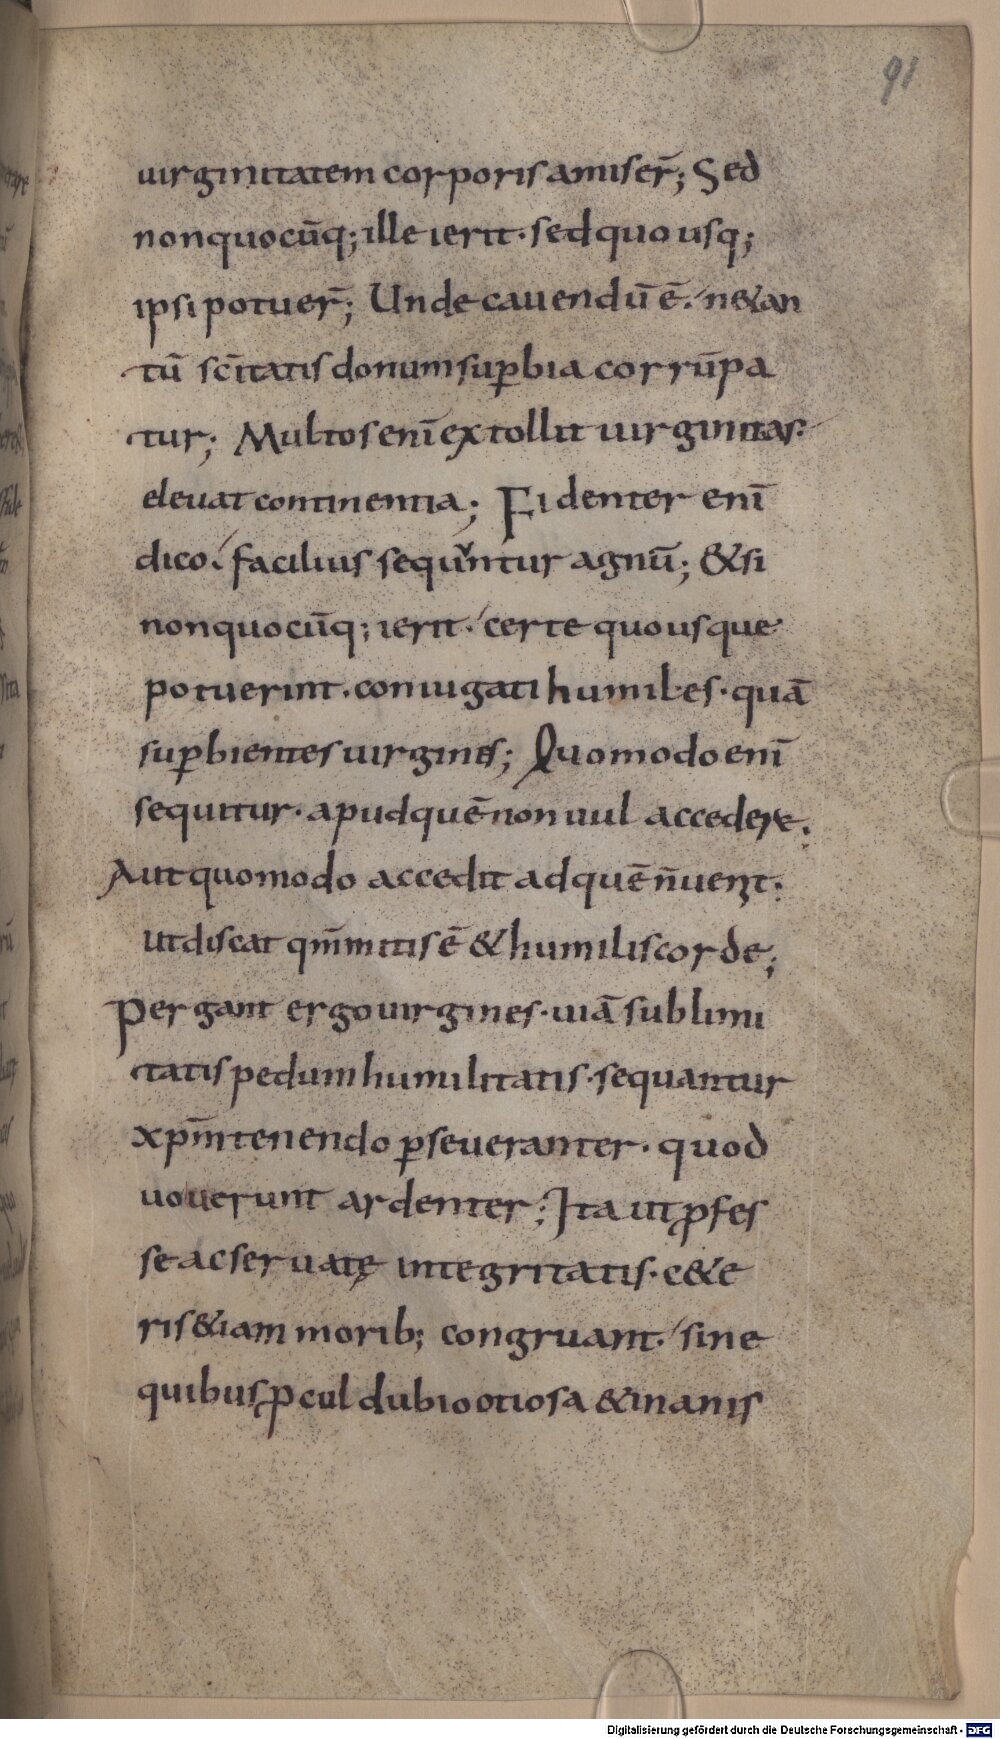 91
uirginitatem corporis amiser̄; Sed
non quocūq; ille ierit· sed quo usq;
ipsi potuer̄; Unde cauendū ē· n&an
tū sc̄itatis donum suꝑbia corrūpa
tur; Multos enī extollit uirginitas·
eleuat continentia; Fidenter enī
dico· facilius sequuntur agnū; &si
non quocūq; ierit· certe quousque
potuerint· coniugati humiles· quā
suꝑbientes uirgines; Quomodo enī
sequitur· apud quē non uul accedere;
Aut quomodo accedit ad quē n̄ uenit;
ut discat qm̄ mitis ē & humilis corde;
Pergant ergo uirgines· uiā sublimi
tatis pedum humilitatis· sequantur
xpm̄ tenendo ꝑseueranter· quod
uouerunt ardenter; Ita ut ꝓfes
se ac seruatę integritatis· c&e
ris &iam morib; congruant· sine
quibus ꝓcul dubio otiosa & inanis
Digitalisierung gefördert durch die Deutsche Forschungsgemeinschaft - DFG